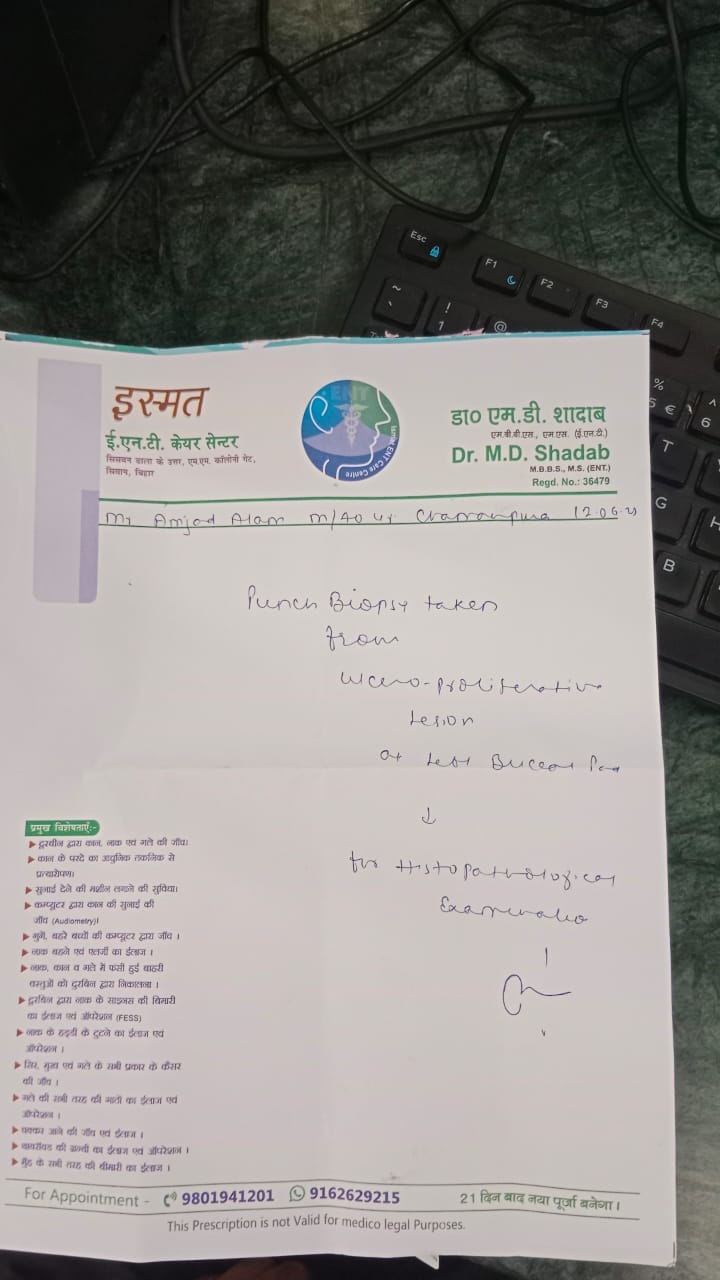 Esc
F1
F2
F3
F4
~
!
1
@
%
5 €
^
6
T
G
H
B
इस्मत
ई.एन.टी. केयर सेन्टर
सिसवन ढाला के उत्तर, एम.एम. कॉलोनी गेट,
सिवान, बिहार
ENT
Ismat ENT Care Centre
डा० एम.डी. शादाब
एम.बी.बी.एस., एम.एस. (ई.एन.टी.)
Dr. M.D. Shadab
M.B.B.S., M.S. (ENT.)
Regd. No.: 36479
Mr Amjad Alam M/40 yr 12.06.
Punch Biopsy taken
from
ulcero-proliferative
lesion
at left Buccal
↓
for Histopathological
Examination
प्रमुख विशेषताएँ:-
▶ दूरबीन द्वारा कान, नाक एवं गले की जाँच।
▶ कान के परदे का आधुनिक तकनिक से
प्रत्यारोपण।
▶ सुनाई देने की मशीन लगाने की सुविधा।
▶ कम्प्यूटर द्वारा कान की सुनाई की
जाँच (Audiometry)।
▶ गुगें, बहरे बच्चों की कम्प्यूटर द्वारा जाँच ।
▶ नाक बहने एवं एलर्जी का ईलाज ।
▶ नाक, कान व गले में फंसी हुई बाहरी
वस्तुओं को दुरबिन द्वारा निकालना ।
▶ दुरबिन द्वारा नाक के साइनस की बिमारी
का ईलाज एवं ऑपरेशन (FESS)
▶ नाक के हड्डी के टुटने का ईलाज एवं
ऑपरेशन ।
▶ सिर, मुख एवं गले के सभी प्रकार के कैंसर
की जाँच ।
▶ गले की सभी तरह की गाठों का ईलाज एवं
ऑपरेशन ।
▶ चक्कर आने की जाँच एवं ईलाज ।
▶ थायरॉयड की ग्रन्थी का ईलाज एवं ऑपरेशन ।
▶ मुँह के सभी तरह की बीमारी का ईलाज ।
For Appointment - 9801941201 9162629215 21 दिन बाद नया पूर्जा बनेगा ।
This Prescription is not Valid for medico legal Purposes.